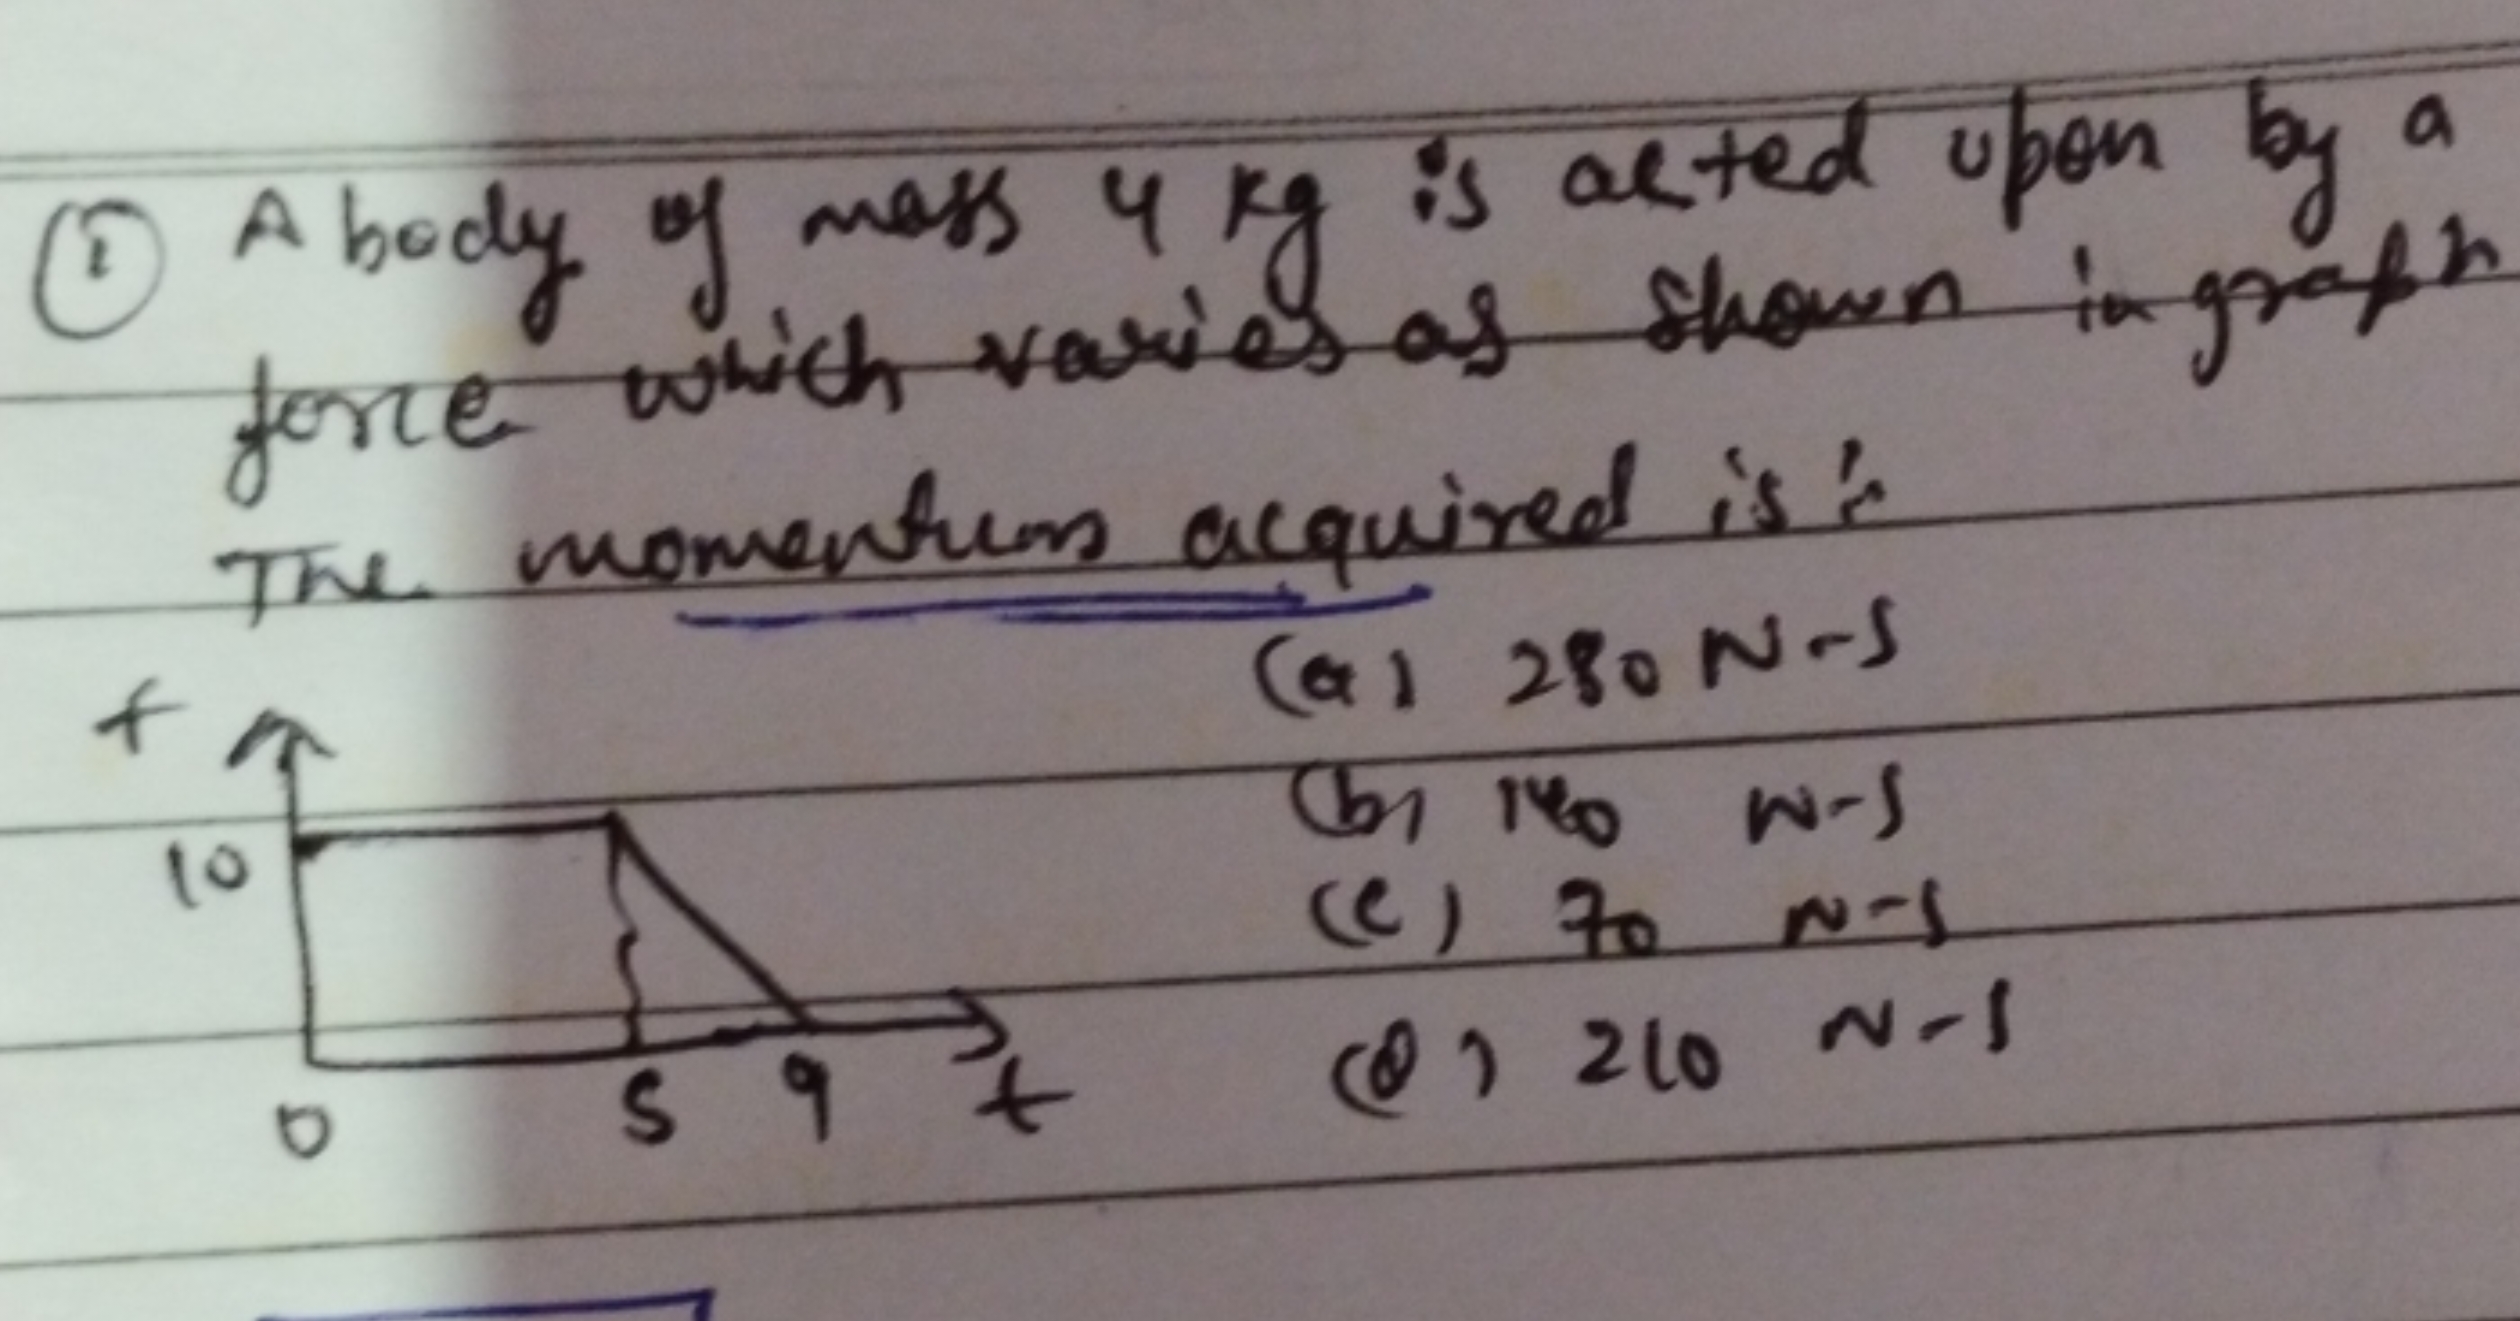 ① A body of mass 4 kg is acted upon by a
force which varies as shown in graph
The momentum acquired is :
(a) 280 N-S
(b) 140 N-S
(c) 70 N-S
(d) 210 N-S
f
10
0 5 9 t